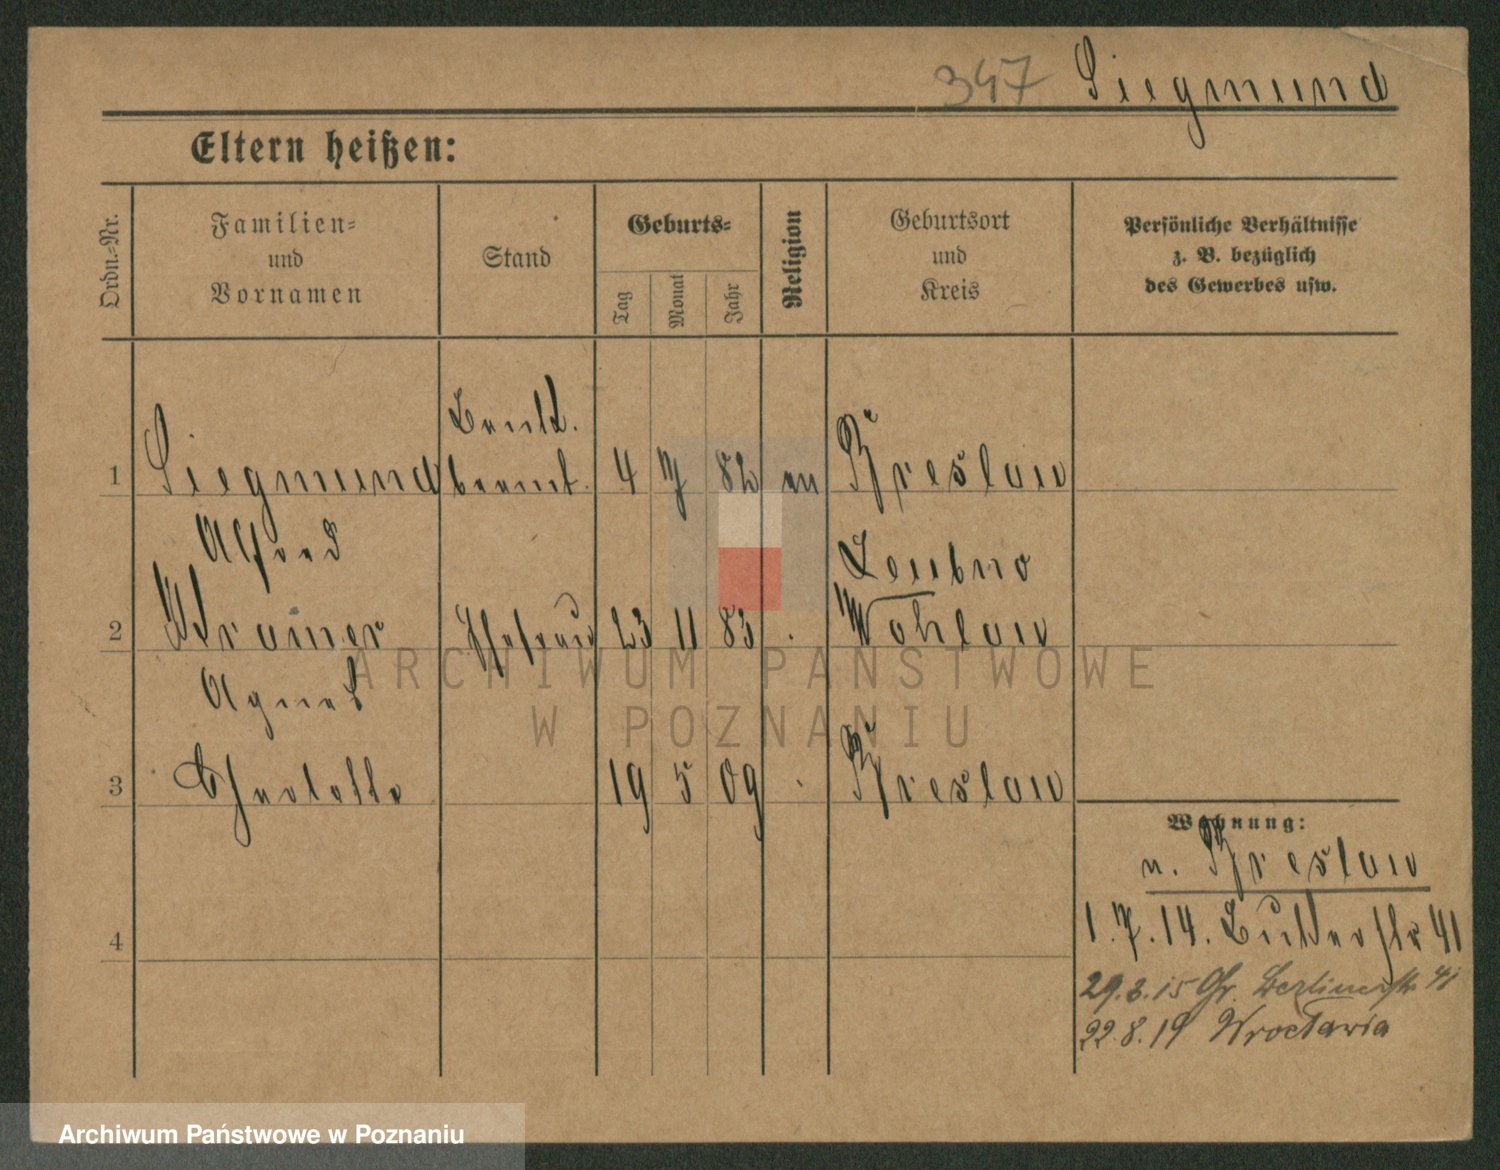 347 Siegmund
Eltern heißen:
Ordn.-Nr.
Familien-
und
Vornamen
Stand
Geburts-
Tag
Monat
Jahr
Religion
Geburtsort
und
Kreis
Persönliche Verhältnisse
z. B. bezüglich
des Gewerbes usw.
1 Siegmund
Alfred
beamt. 4 7 82 ev Breslau
2 Kramer
Agnes
Ehefrau 23 11 83 Leubno
Wohlau
3 Charlotte 19 5 09 Breslau
4
Wohnung:
n. Breslau
1.7.14. 41
29.3.15 Gr. Berlinerstr 41
22.8.19 Wrocławia
ARCHIWUM PAŃSTWOWE
W POZNANIU
Archiwum Państwowe w Poznaniu